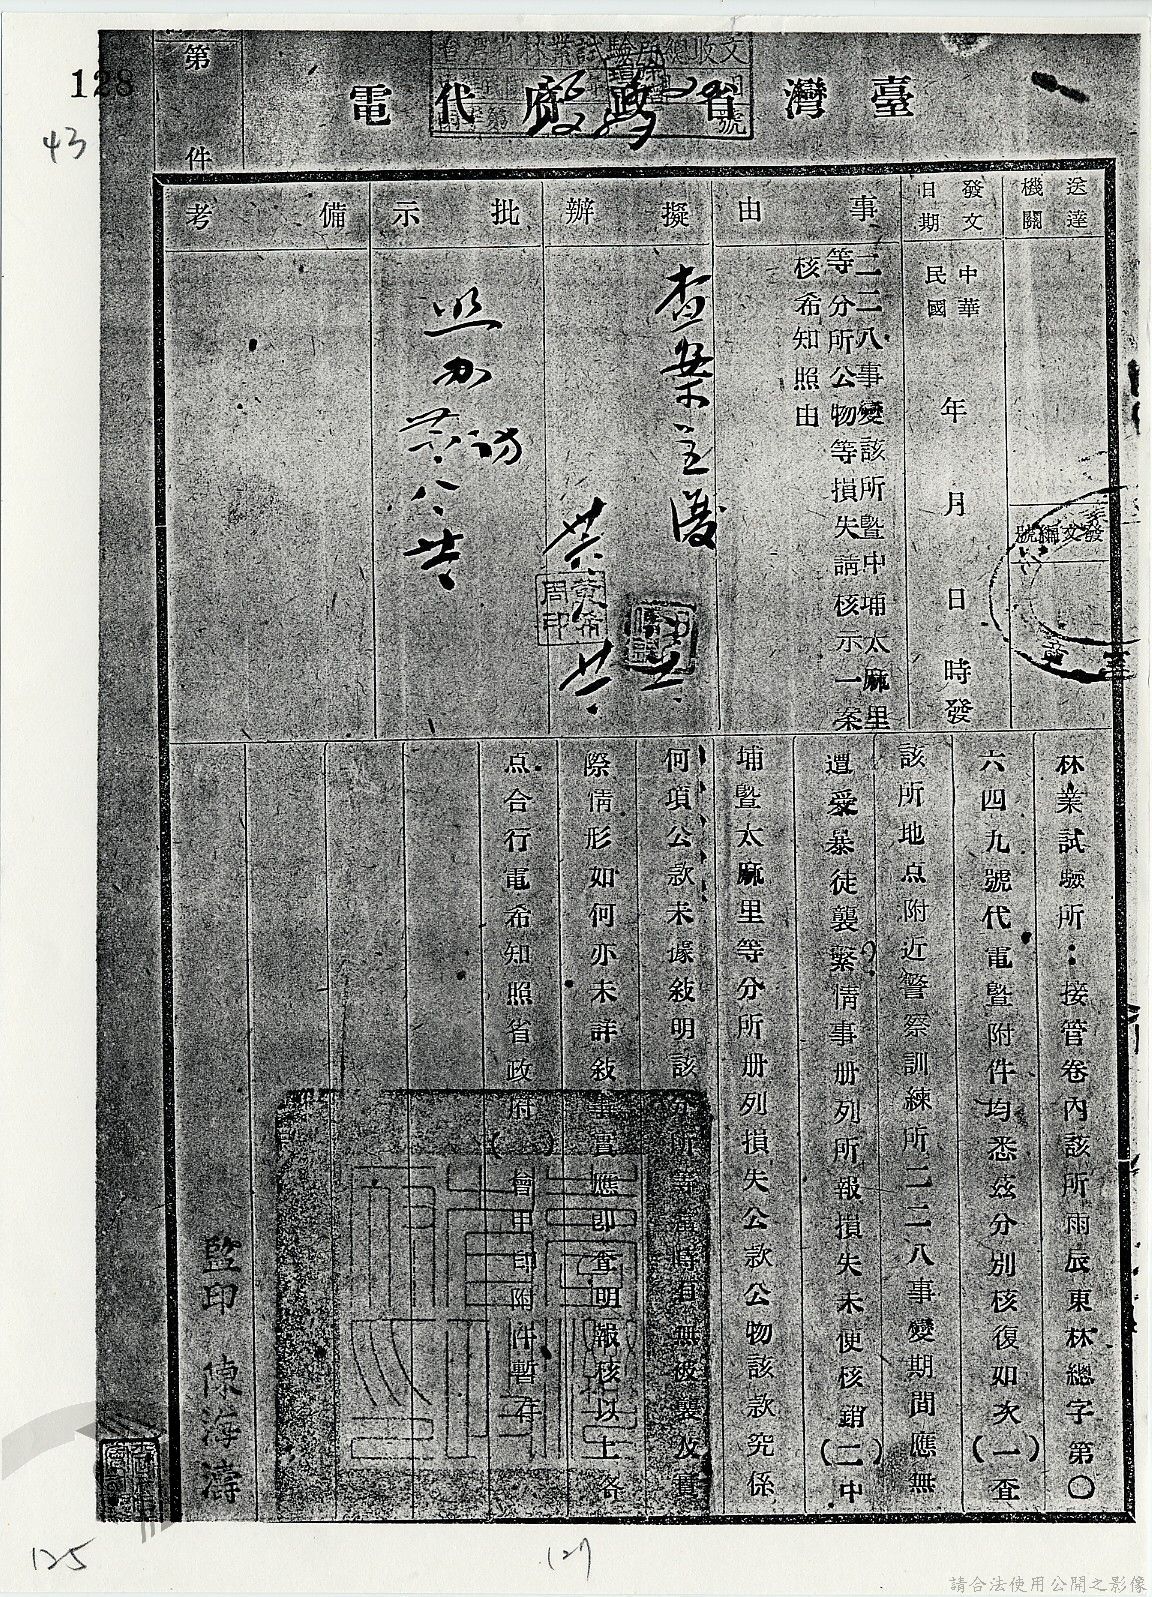 128
43
第
件
臺灣省政府代電
送達機關
發文編號
發文日期
中華民國 年 月 日 時發
事由
二二八事變該所暨中埔太麻里
等分所公物等損失請核示一案
核希知照由
擬辦
查案主
批示
照办
備考
林業試驗所：接管卷內該所雨辰東林總字第〇
六四九號代電暨附件均悉茲分別核復如次(一)查
該所地点附近警察訓練所二二八事變期間應無
遭受暴徒襲緊情事册列所報損失未便核銷(二)中
埔暨太麻里等分所册列損失公款公物該款究係
何項公款未據敍明該分所等當時有無被襲及實
際情形如何亦未詳敍事實應即查明報核以上各
点合行電希知照省政府( )會甲印附件暫存
監印 陳海濤
黃希周印
125
127
請合法使用公開之影像